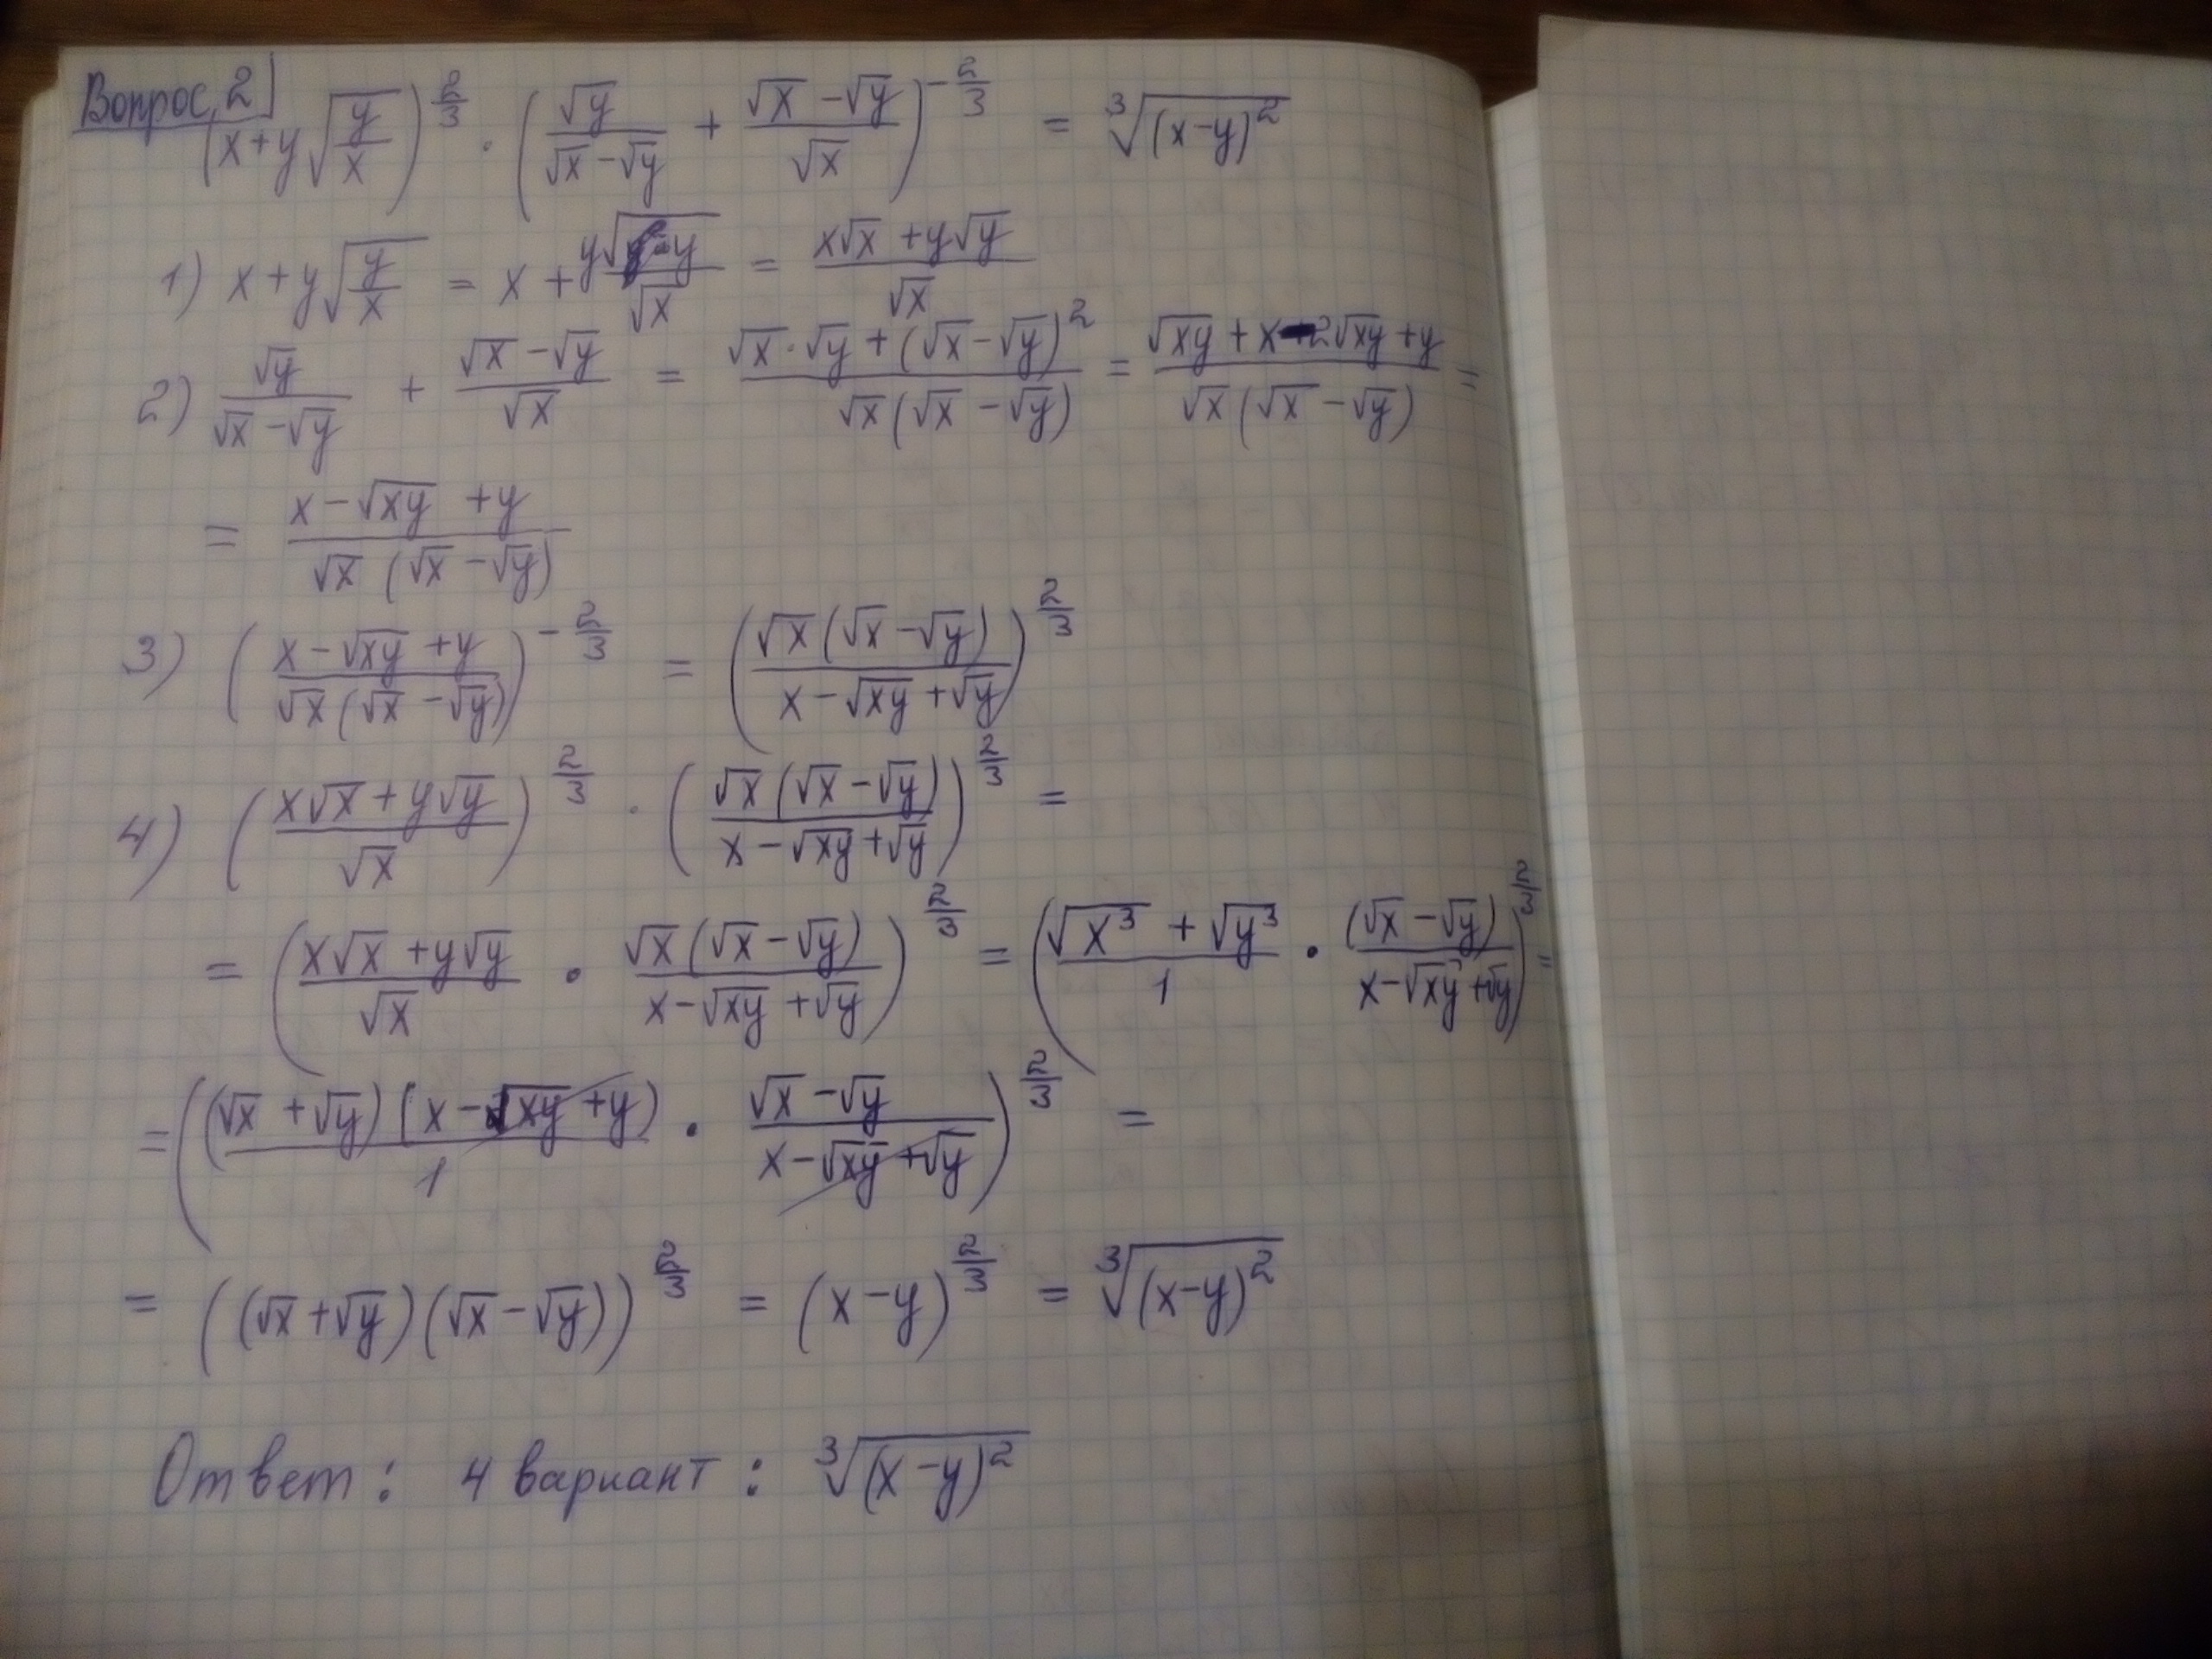 Вопрос 2
(x+y√(y/x))^(2/3) · (√y/(√x-√y) + (√x-√y)/√x)^(-2/3) = ∛((x-y)^2)
1) x+y√(y/x) = x + y√y/√x = (x√x+y√y)/√x
2) √y/(√x-√y) + (√x-√y)/√x = (√x·√y+(√x-√y)^2)/(√x(√x-√y)) = (√xy+x-2√xy+y)/(√x(√x-√y)) =
= (x-√xy+y)/(√x(√x-√y))
3) ((x-√xy+y)/(√x(√x-√y)))^(-2/3) = (√x(√x-√y)/(x-√xy+√y))^(2/3)
4) ((x√x+y√y)/√x)^(2/3) · (√x(√x-√y)/(x-√xy+√y))^(2/3) =
= ((x√x+y√y)/√x · √x(√x-√y)/(x-√xy+√y))^(2/3) = ((√x^3+√y^3)/1 · (√x-√y)/(x-√xy+√y))^(2/3) =
= ((√x+√y)(x-√xy+y)/1 · (√x-√y)/(x-√xy+√y))^(2/3) =
= ((√x+√y)(√x-√y))^(2/3) = (x-y)^(2/3) = ∛((x-y)^2)
Ответ: 4 вариант: ∛((x-y)^2)